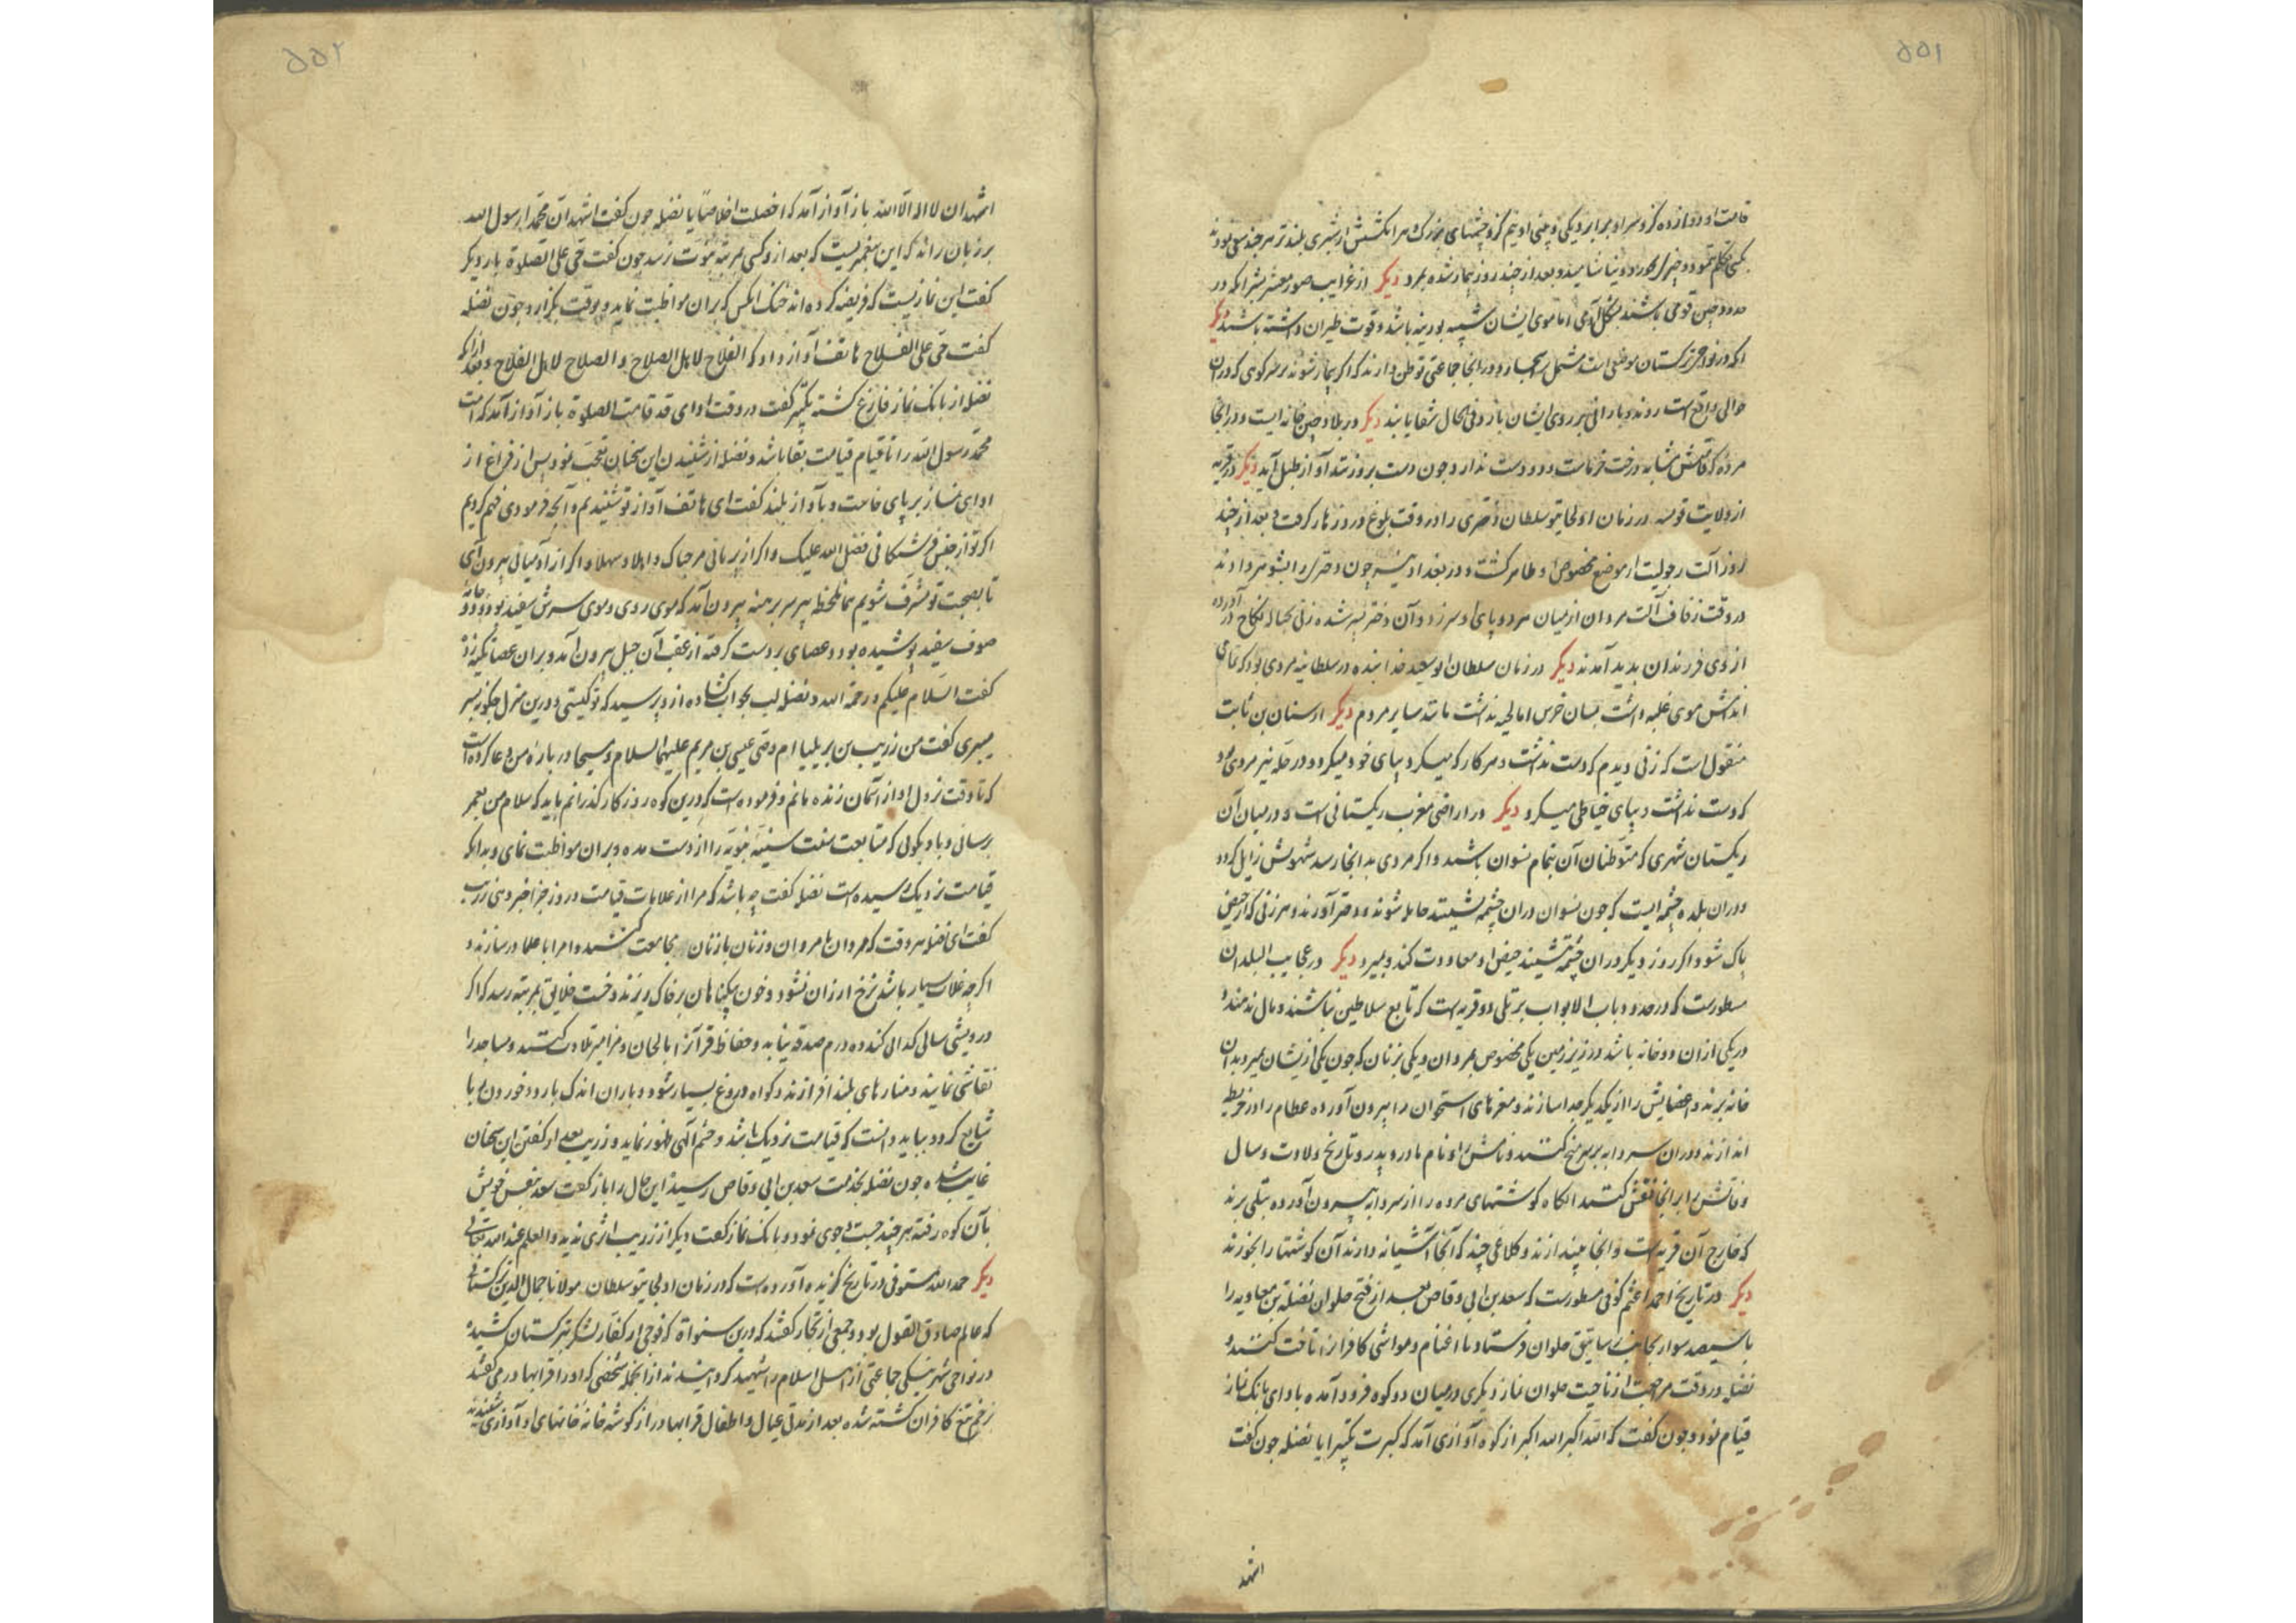 ۵۵۱
قامت او دوازده گز و سر او برابر دیکی و بینی او نیم گز و چشمهای بزرگ و هر انگشتش از شبری بلندتر هر چند سعی نمودند
کسی تکلم ننمود و چیزی نخورد و نیاشامید و بعد از چند روز بیمار شده بمرد دیگر از غرایب صور معشر بشر آنکه در
حدود چین قومی باشند بشکل آدمی اما موی ایشان شبیه بوزینه باشد و قوت طیران داشته باشند دیگر
آنکه در نواحی ترکستان موضعی است مشتمل بر اشجار و در انجا جماعتی توطن دارند که اگر بیمار شوند بر سر کوهی که در ان
حوالی واقع است روند و بارانی بر روی ایشان بارد و فی الحال شفا یابند دیگر در بلاد چین خانه ایست و در انجا
مرده که قامتش مشابه درخت خرماست و دو دست ندارد و چون دست برو زنند آواز طبل آید دیگر در قریه
از ولایت قومسه در زمان اولجایتو سلطان دختری را در وقت بلوغ درد زهار گرفت و بعد از چند
روز آلت رجولیت از موضع مخصوص او ظاهر گشت و در بغداد نیز چون دختر را بشوهر دادند
در وقت زفاف آلت مردان از میان هر دو پای او سر زد و آن دختر پسر شده زنی بحباله نکاح در آورده
از وی فرزندان پدید آمدند دیگر در زمان سلطان ابو سعید خدابنده در سلطانیه مردی بود که تمامی
اندامش موی غلبه داشت بسان خرس اما لحیه نداشت مانند سایر مردم دیگر از سنان بن ثابت
منقول است که زنی دیدم که دست نداشت و هر کار که میکرد بپای خود میکرد و در حله نیز مردی بود
که دست نداشت و بپای خیاطی میکرد دیگر در اراضی مغرب ریکستانی است و در میان آن
ریکستان شهری که متوطنان آن بتمام نسوان باشند و اگر مردی بدانجا رسد شهوتش زایل گردد
و در ان بلده چشمه ایست که چون نسوان در ان چشمه نشینند حامله شوند و دختر آورند و هر زنی که از حیض
پاک شود و اگر روز دیگر در ان چشمه نشیند حیض او معاودت کند و بمیرد دیگر در عجایب البلدان
مسطورست که در حدود باب الابواب بر تلی دو قریه است که تابع سلاطین نباشند و مال ندهند و
در یکی از ان دو خانه باشد در زیر زمین یکی مخصوص بمردان و یکی بزنان که چون یکی از یشان بمیرد بدان
خانه برند و اعضایش را از یکدیگر جدا سازند و مغزهای استخوان را بیرون آورده عظام را در خریطه
اندازند و در ان سردابه بر سر میخ کنند و نامش را و نام مادر و پدر و تاریخ ولادت و سال
وفاتش را بر انجا نقش کنند آنکاه کوشتهای مرده را از سردابه بیرون آورده بتلی برند
که خارج آن قریه است و انجا بیندازند و کلاغی چند که آنجا آشیانه دارند آن کوشتها را بخورند
دیگر در تاریخ احمد اعثم کوفی مسطورست که سعد بن ابی وقاص بعد از فتح حلوان نضله بن معاویه را
با سیصد سوار بجانب رساتیق حلوان فرستاد تا اغنام و مواشی کافران را تاخت کنند و
نضله در وقت مراجعت از ناحیت حلوان نماز دیگری در میان دو کوه فرود آمده بادای بانک نماز
قیام نمود و چون گفت که الله اکبر الله اکبر از کوه آوازی آمد که کبرت تکبیرا یا نضله چون گفت
اشهد
۵۵۲
اشهد ان لا اله الا الله باز آواز آمد که اخلصت اخلاصا یا نضله چون گفت اشهد ان محمدا رسول الله
بر زبان راند که این پیغمبریست که بعد از و کسی مرتبه نبوت نرسد چون گفت حی علی الصلوة بار دیگر
گفت این نمازیست که فریضه کرده اند خنک انکس که بر ان مواظبت نماید و بوقت بگزارد و چون نضله
گفت حی علی الفلاح هاتف آواز داد که الفلاح لاهل الصلاح و الصلاح لاهل الفلاح و بعد از انکه
نضله از بانک نماز فارغ کشته تکبیر گفت در وقت ادای قد قامت الصلوة باز آواز آمد که امت
محمد رسول الله را تا قیام قیامت بقا باشد و نضله از شنیدن این سخنان متعجب نمود پس از فراغ از
ادای نماز بر پای خاست و بآواز بلند گفت ای هاتف آواز تو شنیدیم و آنچه فرمودی فهم کردیم
اگر تو از جنس فرشتگانی فضل الله علیک و اگر از پریانی مرحبا بک و اهلا و سهلا و اگر از آدمیانی بیرون آی
تا بصحبت تو مشرف شویم همان لحظه پیر سر برهنه بیرون آمد که موی روی و موی سرش سفید بود و دو جامه
صوف سفید پوشیده بود و عصای بر دست گرفته از عقب آن جبل بیرون آمد و بر ان عصا تکیه زد و
گفت السلام علیکم و رحمة الله و نضله لب بجواب گشاده از و پرسید که تو کیستی و درین منزل چگونه بسر
میبری گفت من زریب بن برثملیا ام وصی عیسی بن مریم علیهما السلام و مسیحا در باره من دعا کرده است
که تا وقت نزول او از آسمان زنده مانم و فرموده است که درین کوه روز کار گذرانم باید که سلام من بعمر
برسانی و با و بگوئی که متابعت سنت سنیه نبویه را از دست مده و بر ان مواظبت نمای و بدانکه
قیامت نزدیک رسیده است نضله گفت چه باشد که مرا از علامات قیامت و روز جزا خبر دهی زریب
گفت ای نضله هر وقت که مردان با مردان و زنان با زنان مجامعت کنند و امرا با علما در سازند و
اگر چه غلات بسیار باشد نرخ ارزان نشود و خون بیگناهان بر خاک ریزند و خست خلایق بمرتبه رسد که اگر
درویشی سالی گدائی کند ده درم صدقه نیابد و حفاظ قرآن را بالحان و مزامیر تلاوت کنند و مساجد را
نقاشی نمایند و منارهای بلند افرازند و کواه دروغ بسیار شود و باران اندک بارد و خوردن ربا
شایع گردد بباید دانست که قیامت نزدیک باشد و خشم آلهی ظهور نماید و زریب بعد از گفتن این سخنان
غایب شد و چون نضله بخدمت سعد بن ابی وقاص رسید این حال را باز گفت سعد بنفس خویش
بآن کوه رفته هر چند جست و جوی نمود و بانک نماز گفت دیگر از زریب اثری ندید و العلم عند الله تعالی
دیگر حمد الله مستوفی در تاریخ گزیده آورده است که در زمان اولجایتو سلطان مولانا جمال الدین ترکستانی
که عالم صادق القول بود و جمعی از تجار گفتند که درین سنوات که فوجی از کفار لشکر بترکستان کشیده
در نواحی شهر نیکی جماعتی از اهل اسلام را شهید گردانیدند از انجمله شخصی که او را قرابهادر می گفتند
بزخم تیغ کافران کشته شده بعد از مدتی عیال و اطفال قرابهادر از گوشه خانه خانهای او آوازی شنیدند